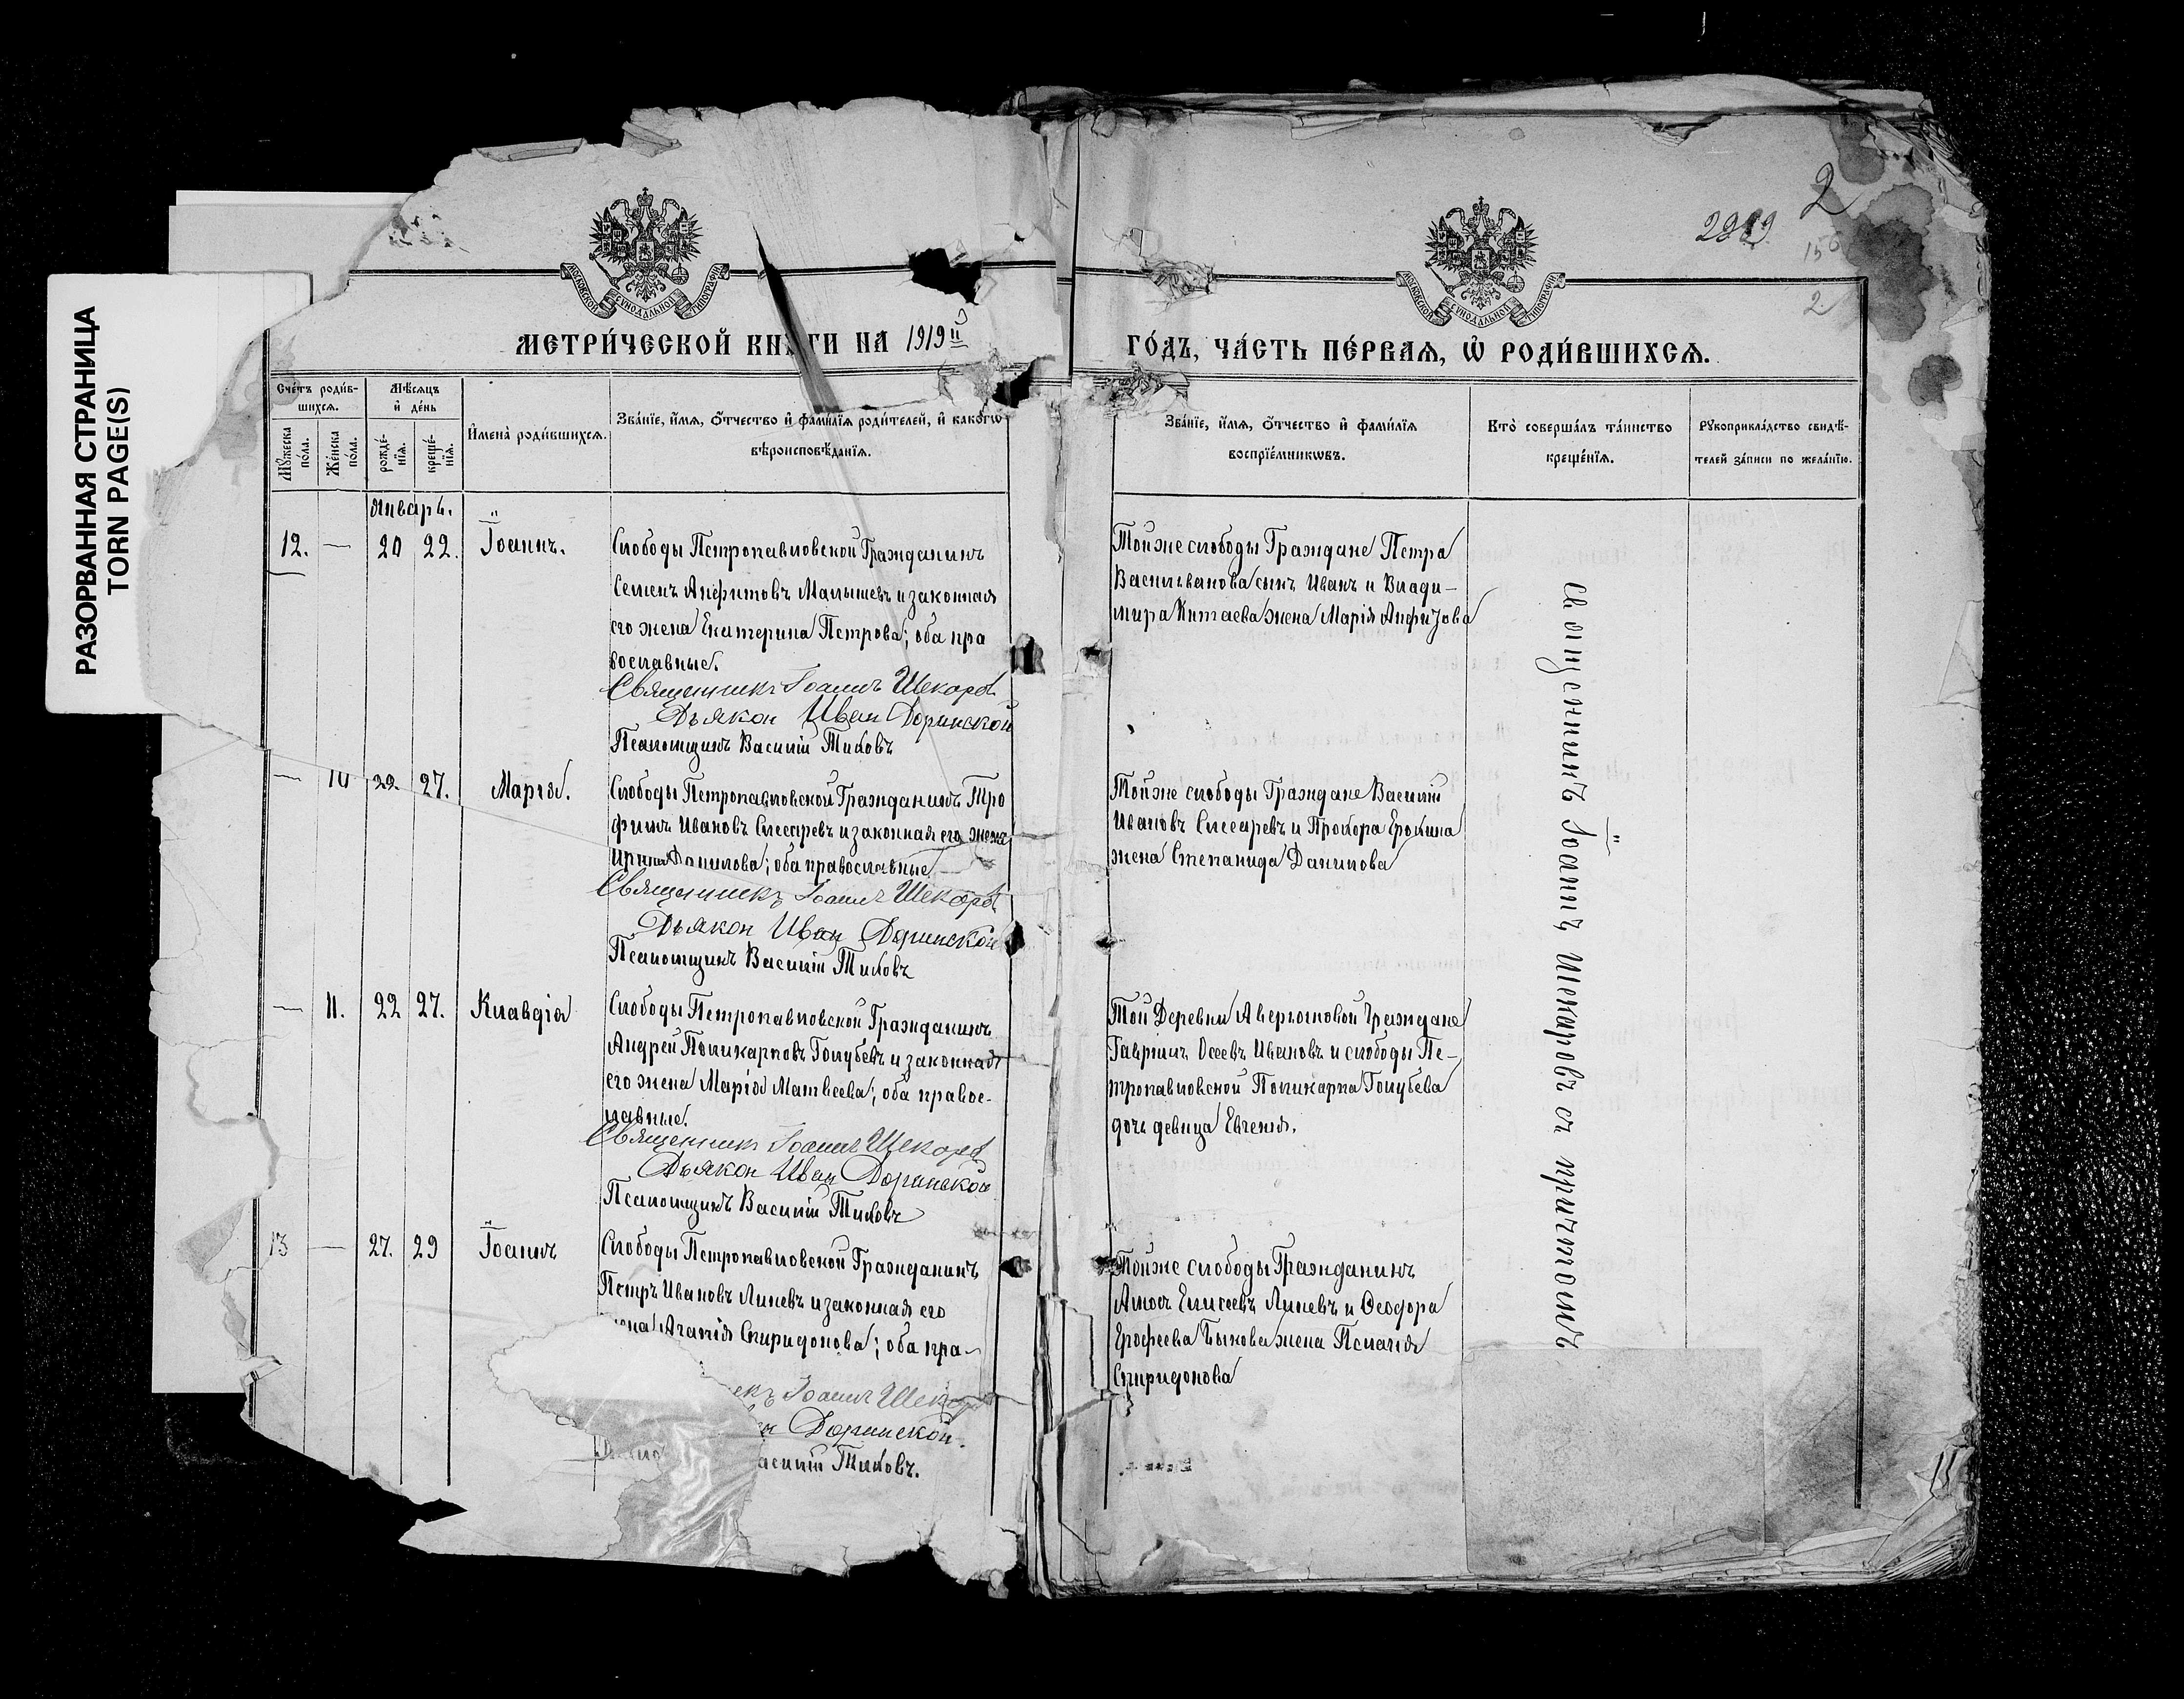 РАЗОРВАННАЯ СТРАНИЦА
TORN PAGE(S)
2
2
МОСКОВСКОЙ СѴНОДАЛЬНОЙ ТИПОГРАФІИ
МОСКОВСКОЙ СѴНОДАЛЬНОЙ ТИПОГРАФІИ
МЕТРИ́ЧЕСКОЙ КНИГИ НА 1919 й
ГО́ДЪ, ЧА́СТЬ ПЕ́РВАЯ, Ѡ РОДИ́ВШИХСЯ.
Сче́тъ роди́в-
шихся.
Мѣ́сяцъ
и де́нь
Мꙋ́жеска по́ла.
Же́нска по́ла.
рожде́нїя.
креще́нїя.
Имена̀ роди́вшихся.
Зва́нїе, и́мя, о́тчество и фами́лїя роди́телей, и како́гѡ
вѣроисповѣ́данїя.
Зва́нїе, и́мя, о́тчество и фами́лїя
воспрїе́мникѡвъ.
Кто̀ соверша́лъ та́инство
креще́нїя.
Рꙋкоприкла́дство свидѣ́-
телей за́писи по жела́нїю.
Январь.
12. — 20 22. Іоаннъ.
Слободы Петропавловской Гражданинъ
Семенъ Анфитовъ Малышевъ и законная
его жена Екатерина Петрова; оба пра
вославные.
Священникъ Іоаннъ Шекоровъ
Дьякон Иван Доринской
Псаломщикъ Василій Тиховъ
Тойже слободы Граждане Петра
Васильванова сынъ Иванъ и Влади-
мира Китаева жена Марія Анфизова
— 10 22. 27. Марія.
Слободы Петропавловской Гражданинъ Тро
фимъ Ивановъ Слесаревъ и законная его жена
Ирина Данилова; оба православные.
Священникъ Іоаннъ Шекоровъ
Дьякон Иван Доринской
Псаломщикъ Василій Тиховъ
Тойже слободы Граждане Василій
Ивановъ Слесаревъ и Прохора Ерохина
жена Степанида Данилова
— 11. 22 27. Клавдія
Слободы Петропавловской Гражданинъ
Андрей Поликарповъ Голубевъ и законная
его жена Марія Матвеева; оба правос-
лавные.
Священникъ Іоаннъ Шекоровъ
Дьякон Иван Доринской
Псаломщикъ Василій Тиховъ
Той Деревни Аверьяновой Граждане
Гавріилъ Осеевъ Ивановъ и слободы Пе-
тропавловской Поликарпа Голубева
дочь девица Евгенія.
13 — 27. 29 Іоаннъ
Слободы Петропавловской Гражданинъ
Петръ Ивановъ Линевъ и законная его
жена Агапія Спиридонова; оба пра-
Іоаннъ Шекор
Доринской.
Василій Тиховъ.
Тойже слободы Гражданинъ
Амосъ Елисеевъ Линевъ и Ѳеодора
Ерофеева Быкова жена Пелагія
Спиридонова
Священникъ Іоаннъ Шекаровъ съ причтомъ